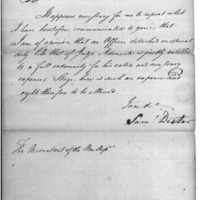 Sir
It appears necessary for me to repeat what
I have heretofore communicated to you, that
I am of opinion that an Officer detached on special
duty like that of Judge Advocate is justly entitled
to a full indemnity for his extra and necessary
expences. Stage hire is such an expence and
ought therefore to be allowed
I am &c
Saml Dexter
The Accountant of the War Dept